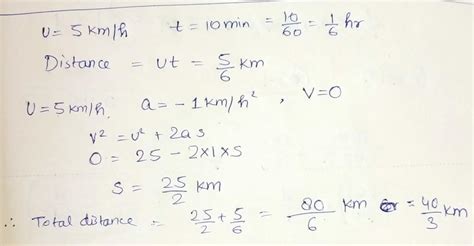 U = 5 km/h t = 10 min = 10/60 = 1/6 hr
Distance = Ut = 5/6 km
U = 5 km/h, a = -1 km/h², V=0
V² = U² + 2as
0 = 25 - 2x1xS
S = 25/2 km
∴ Total distance = 25/2 + 5/6 = 80/6 km = 40/3 km